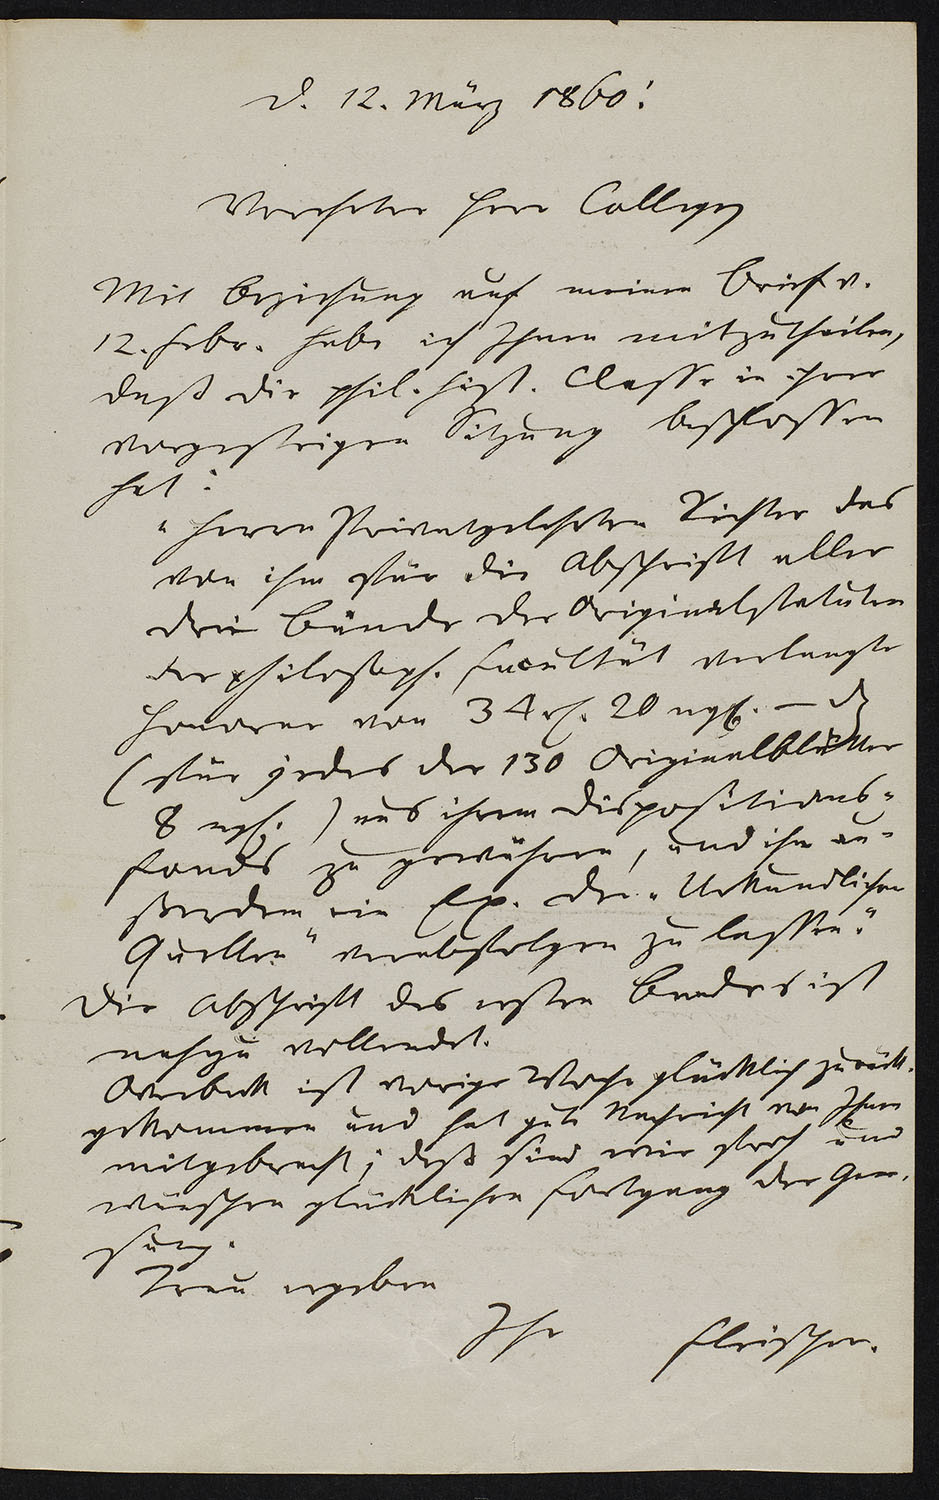 d. 12. März 1860.
Verehrter Herr College
Mit Beziehung auf meinen Brief v.
12. Febr. habe ich Ihnen mitzutheilen,
daß die phil. hist. Classe in ihrer
vorgestrigen Sitzung beschlossen
hat:
„Herrn Privatgelehrten Richter das
von ihm für die Abschrift aller
drei Bände der Originalstatuten
der philosoph. Facultät verlangte
Honorar von 34 rh. 20 ngr. —
(für jedes der 130 Originalblätter
8 ngr.) aus ihrem Dispositions-
fonds zu gewähren, und ihm au-
ßerdem ein Ex. der „Urkundlichen
Quellen" verabfolgen zu lassen."
Die Abschrift des ersten Bandes ist
nahezu vollendet.
Overbeck ist vorige Woche glücklich zurück-
gekommen und hat gute Nachricht von Ihnen
mitgebracht; deß sind wir froh und
wünschen glücklichen Fortgang der Gene-
sung.
Treu ergeben
Ihr Fleischer.